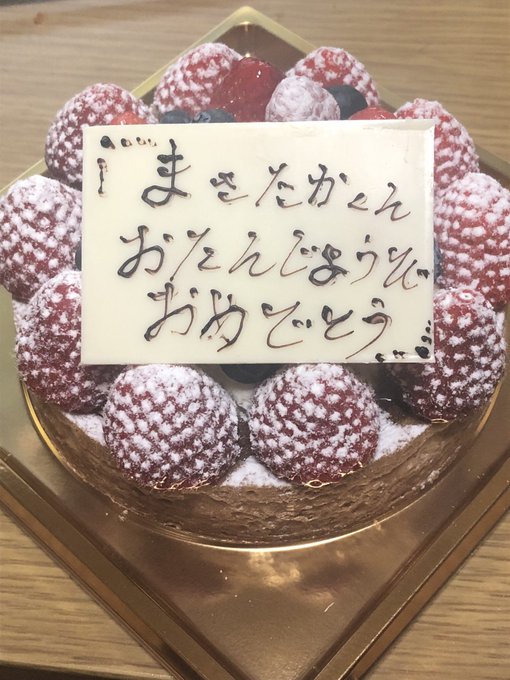 まさたかくん
おたんじょうび
おめでとう